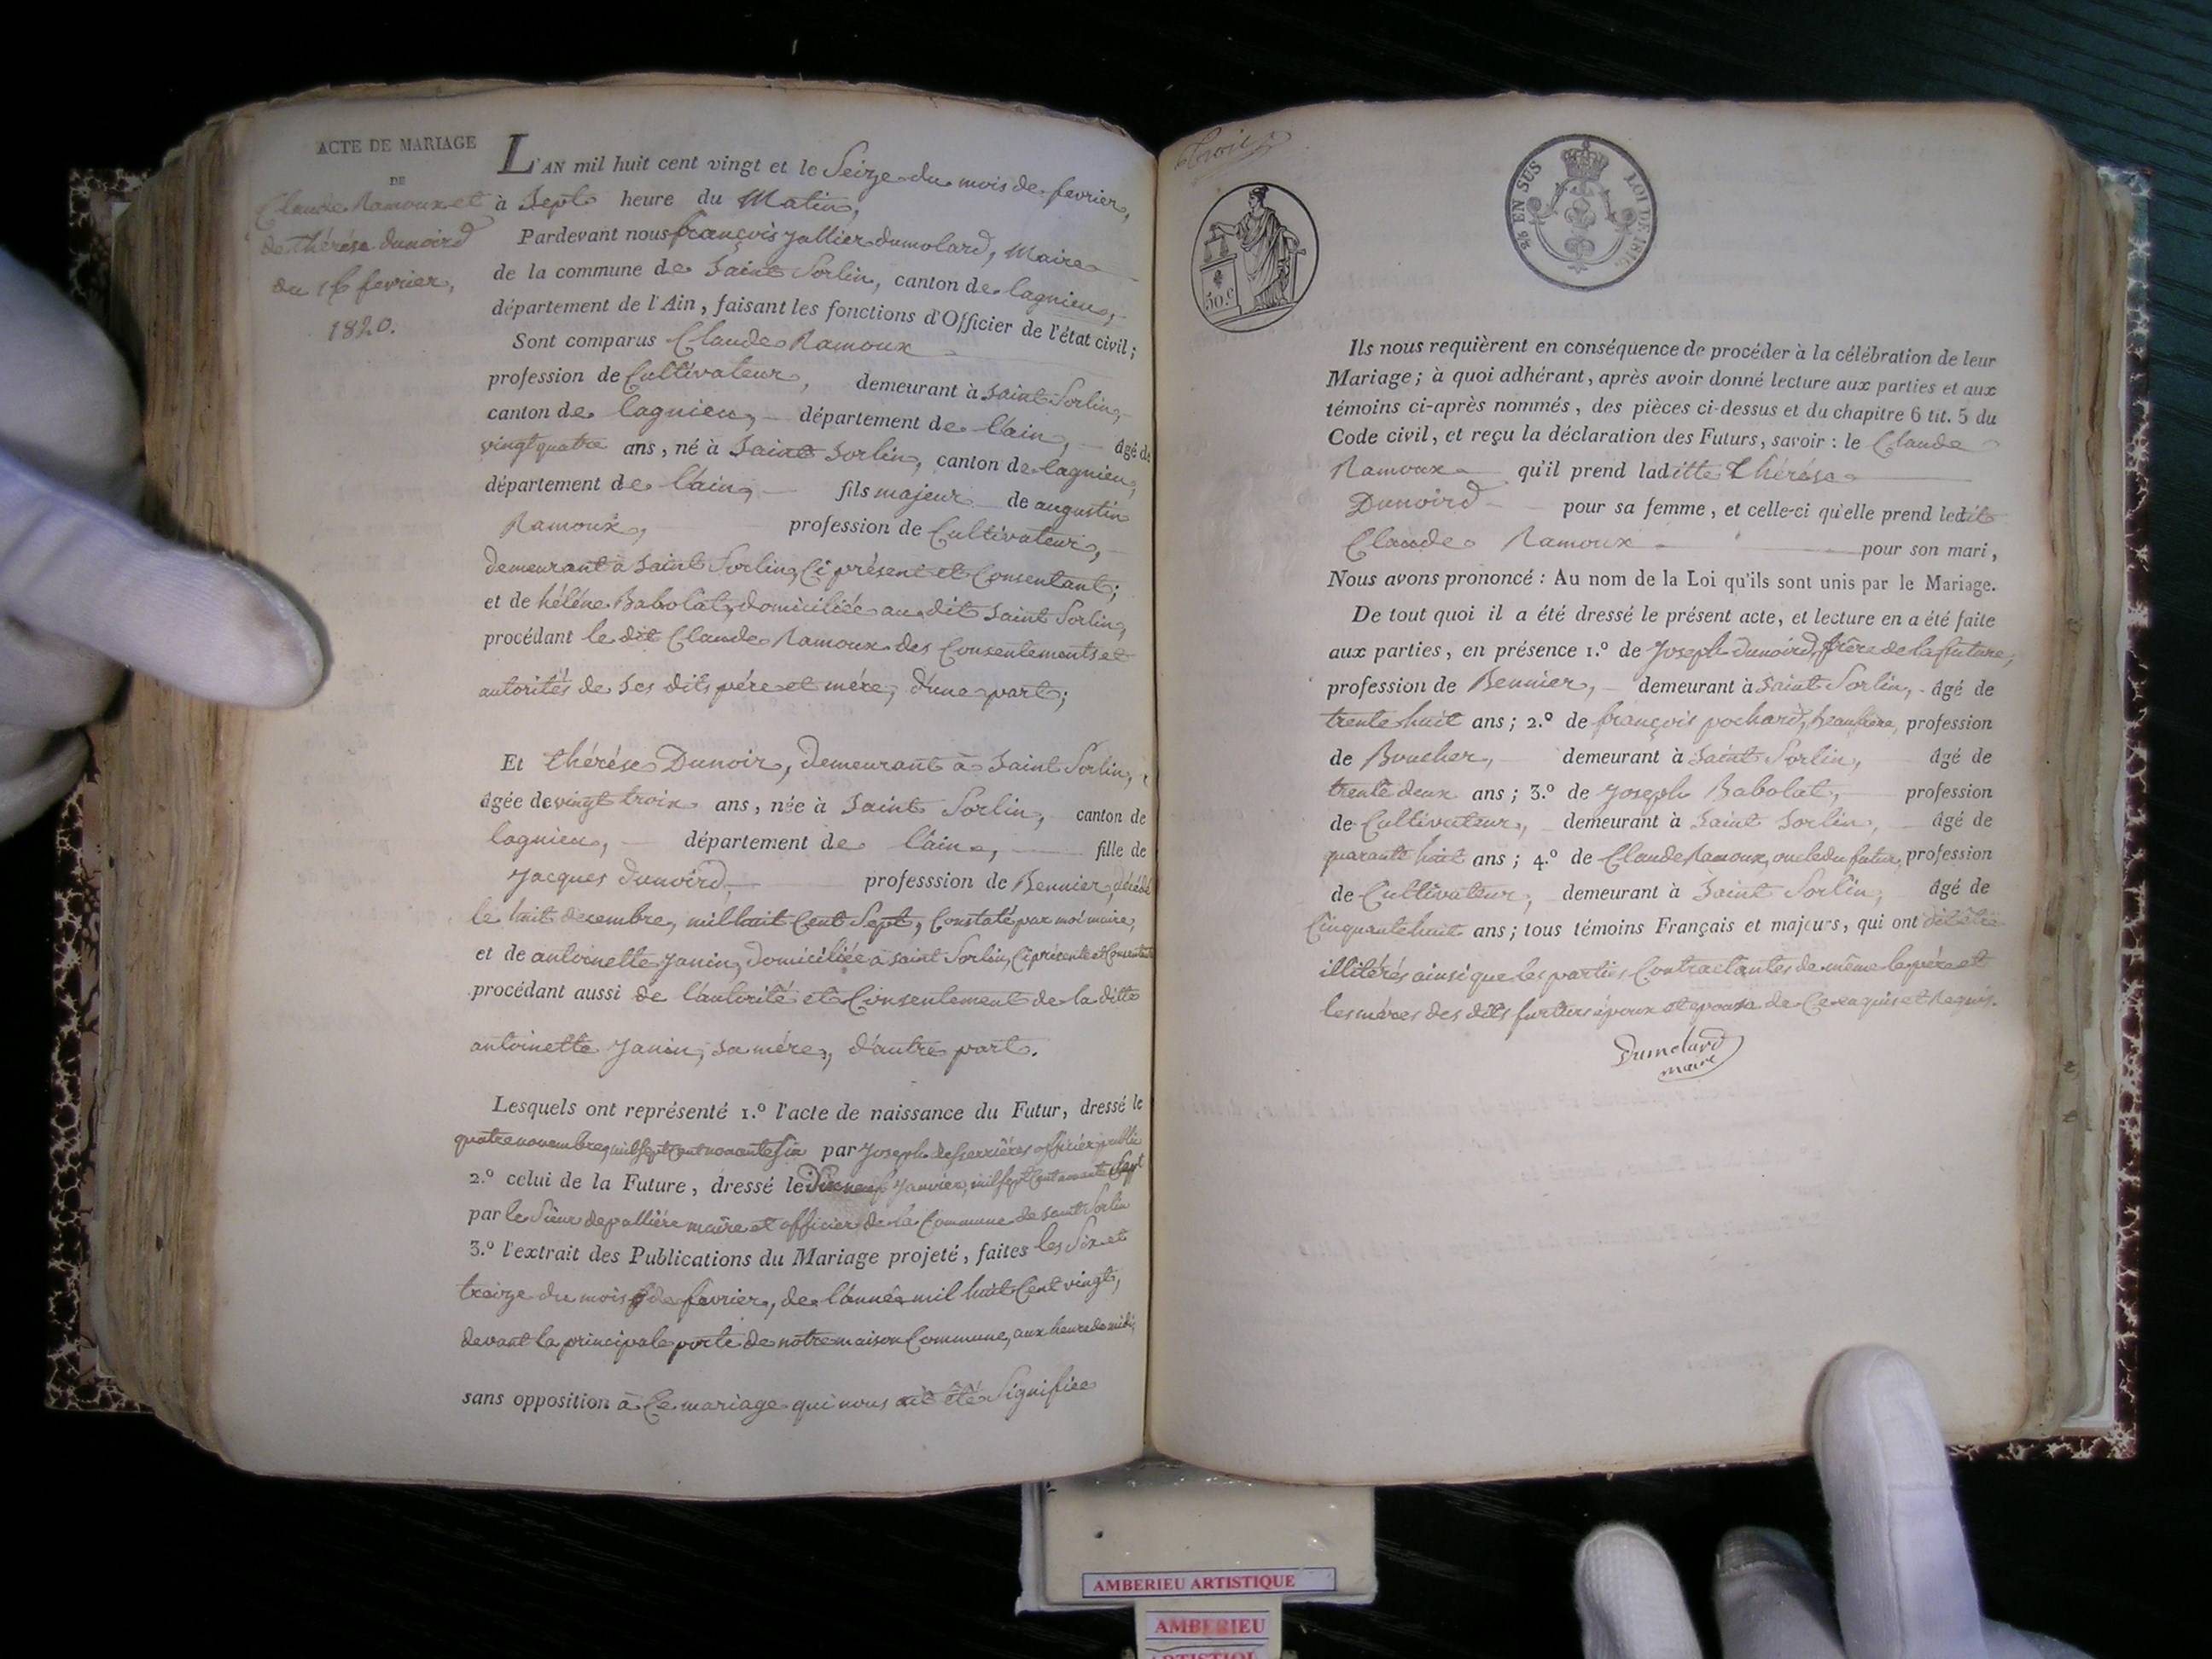 ACTE DE MARIAGE
DE
Claude Ramoux et
de thérése dunoird
du 16 fevrier,
1820.
L'AN mil huit cent vingt et le Seize du mois de fevrier,
à Sept heure du Matin,
Pardevant nous françois Jullier dumolard, Maire
de la commune de Saint Sorlin, canton de lagnieu,
département de l'Ain, faisant les fonctions d'Officier de l'état civil;
Sont comparus Claude Ramoux
profession de Cultivateur, demeurant à Saint Sorlin,
canton de lagnieu, département de l'ain, âgé de
vingt quatre ans, né à Saint Sorlin, canton de lagnieu,
département de l'ain, fils majeur de augustin
Ramoux, profession de Cultivateur,
demeurant à Saint Sorlin, Ci présent et Consentant;
et de héléne Babolat, domiciliée au dit Saint Sorlin,
procédant le dit Claude Ramoux des Consentements et
autorités de Ses dits pére et mére, d'une part;
Et thérése Dunoir, demeurant à Saint Sorlin,
âgée de vingt trois ans, née à Saint Sorlin, canton de
lagnieu, département de l'ain, fille de
Jacques dunoird, professsion de Bennier, décédé
le huit decembre, mil huit Cent Sept, Constaté par moi maire,
et de antoinette Janin, domiciliée à Saint Sorlin, Ci présente et Consentante
procédant aussi de l'autorité et Consentement de la ditte
antoinette Janin, sa mére, d'autre part.
Lesquels ont représenté 1.º l'acte de naissance du Futur, dressé le
quatre novembre, mil Sept Cent nonante Six par Joseph deferrières officier public
2.º celui de la Future, dressé le Dix neuf Janvier, mil Sept Cent nonante Sept
par le Sieur depallière maire et officier de la Commune de Saint Sorlin
3.º l'extrait des Publications du Mariage projeté, faites les Six et
treize du mois de fevrier, de l'année mil huit Cent vingt,
devant la principale porte de notre maison Commune, aux heure de midi,
sans opposition à Ce mariage qui nous ait été Signifiée
trois
50.C
% EN SUS LOI DE 1816.
Ils nous requièrent en conséquence de procéder à la célébration de leur
Mariage; à quoi adhérant, après avoir donné lecture aux parties et aux
témoins ci-après nommés, des pièces ci-dessus et du chapitre 6 tit. 5 du
Code civil, et reçu la déclaration des Futurs, savoir: le Claude
Ramoux qu'il prend laditte thérése
Dunoird pour sa femme, et celle-ci qu'elle prend ledit
Claude Ramoux pour son mari,
Nous avons prononcé: Au nom de la Loi qu'ils sont unis par le Mariage.
De tout quoi il a été dressé le présent acte, et lecture en a été faite
aux parties, en présence 1.º de Joseph dunoird, frère de la future,
profession de Bennier, demeurant à Saint Sorlin, âgé de
trente huit ans; 2.º de françois pochard, beaufrere, profession
de Boucher, demeurant à Saint Sorlin, âgé de
trente deux ans; 3.º de Joseph Babolat, profession
de Cultivateur, demeurant à Saint Sorlin, âgé de
quarante huit ans; 4.º de Claude Ramoux, oncle du futur, profession
de Cultivateur, demeurant à Saint Sorlin, âgé de
Cinquante huit ans; tous témoins Français et majeurs, qui ont dit être
illitérés ainsi que les parties Contractantes de même le pére et
les méres des dits furturs époux et epouse de Ce enquis et Requis.
Dumolard
maire
AMBERIEU ARTISTIQUE
AMBERIEU
ARTISTIQUE